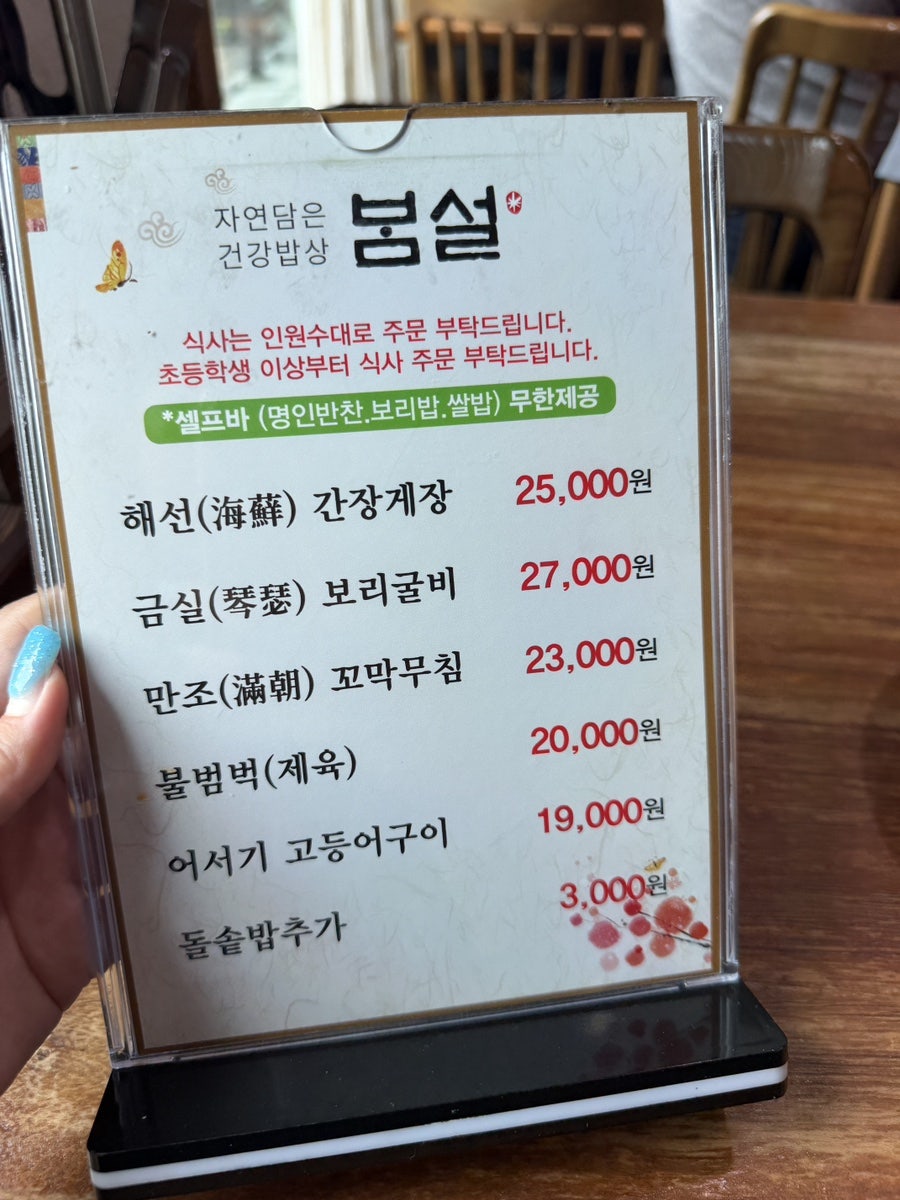 자연담은
건강밥상
봄설
식사는 인원수대로 주문 부탁드립니다.
초등학생 이상부터 식사 주문 부탁드립니다.
*셀프바 (명인반찬.보리밥.쌀밥) 무한제공
해선(海蘚) 간장게장 25,000원
금실(琴瑟) 보리굴비 27,000원
만조(滿朝) 꼬막무침 23,000원
불범벅(제육) 20,000원
어서기 고등어구이 19,000원
돌솥밥추가 3,000원